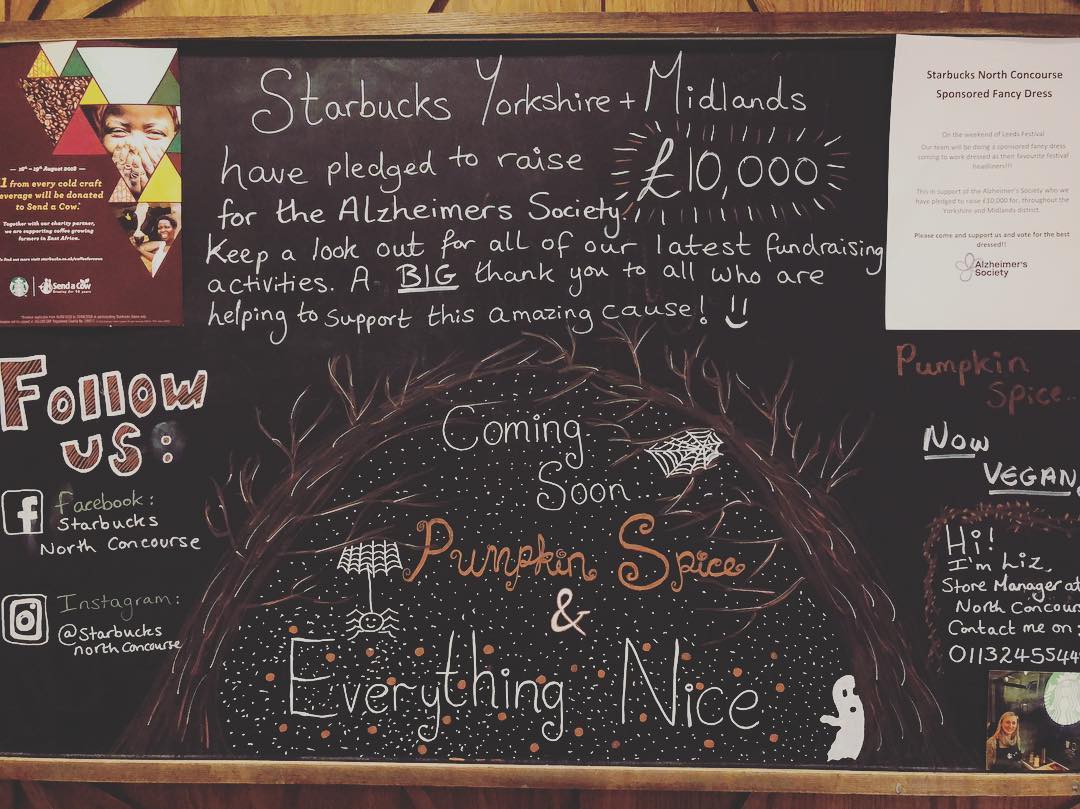 Starbucks Yorkshire + Midlands
have pledged to raise £10,000
for the Alzheimers Society.
Keep a look out for all of our latest fundraising
activities. A BIG thank you to all who are
helping to support this amazing cause!
— 16th – 19th August 2018 —
1 from every cold craft
everage will be donated
to Send a Cow.
Together with our charity partner,
we are supporting coffee growing
farmers in East Africa.
Send a Cow
Starbucks North Concourse
Sponsored Fancy Dress
On the weekend of Leeds Festival
Our team will be doing a sponsored fancy dress
coming to work dressed as their favourite festival
headliners!!!
This in support of the Alzheimer's Society who we
have pledged to raise £10,000 for, throughout the
Yorkshire and Midlands district.
Please come and support us and vote for the best
dressed!!
Alzheimer's
Society
Follow
us:
Facebook:
Starbucks
North Concourse
Instagram:
@Starbucks
northconcourse
Coming
Soon
Pumpkin Spice
&
Everything Nice
Pumpkin
Spice...
Now
VEGAN
Hi!
I'm Liz,
Store Manager at
North Concour
Contact me on :
0113245544